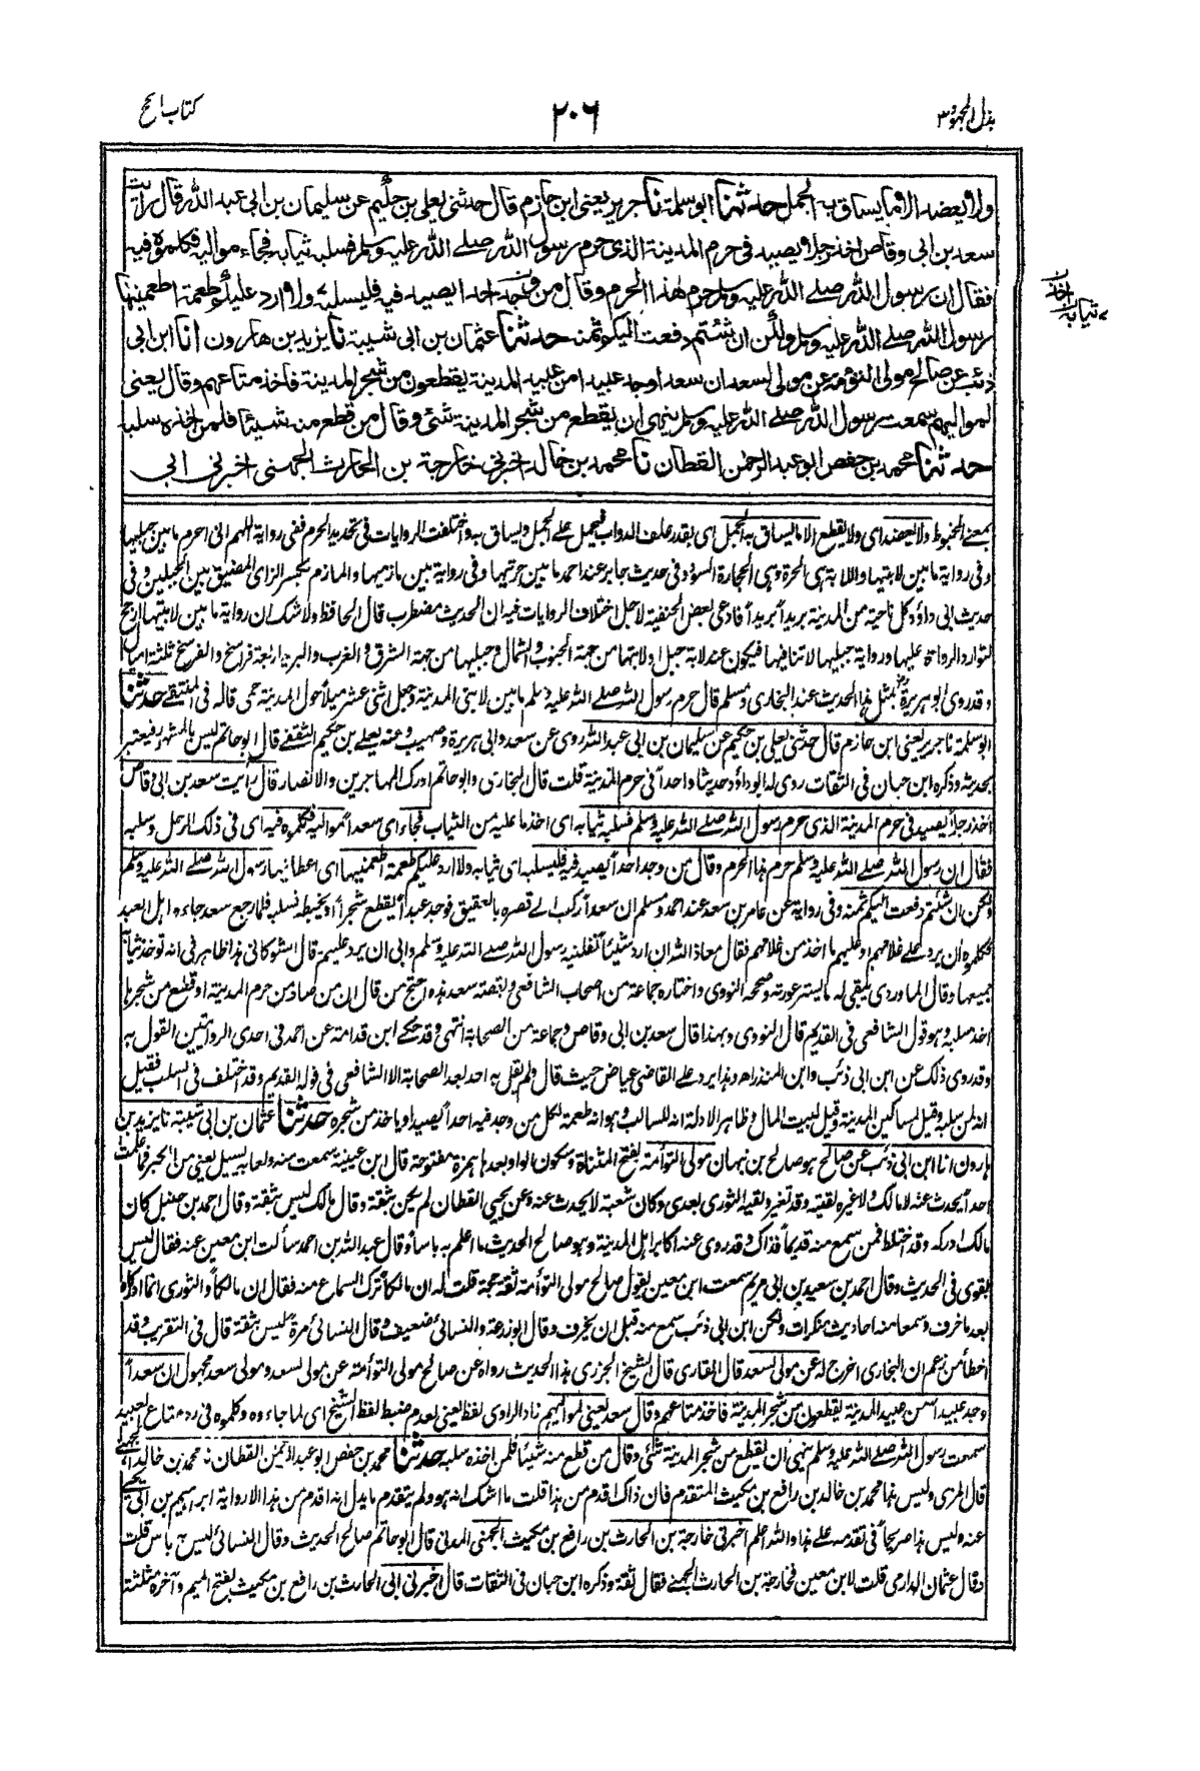 بذل المجهود ٣
٢٠٦
كتاب الحج
ولا يعضد الا ما يساق به الجمل حدثنا ابو سلمة نا جرير يعني ابن حازم قال حدثني يعلى بن حكيم عن سليمان بن ابي عبد الله قال رأيت
سعد بن ابي وقاص اخذ رجلا يصيد في حرم المدينة الذي حرم رسول الله صلى الله عليه وسلم فسلبه ثيابه فجاء مواليه فكلموه فيه
فقال ان رسول الله صلى الله عليه وسلم حرم هذا الحرم وقال من وجد احدا يصيد فيه فليسلبه ولا ارد عليكم طعمة اطعمنيها
رسول الله صلى الله عليه وسلم ولكن ان شئتم دفعت اليكم ثمنه حدثنا عثمان بن ابي شيبة نا يزيد بن هارون انا ابن ابي
ذئب عن صالح مولى التوءمة عن مولى لسعد ان سعدا وجد عبيدا من عبيد المدينة يقطعون من شجر المدينة فاخذ متاعهم وقال يعني
لمواليهم سمعت رسول الله صلى الله عليه وسلم ينهى ان يقطع من شجر المدينة شئ وقال من قطع منه شيئا فلمن اخذه سلبه
حدثنا محمد بن حفص ابو عبد الرحمن القطان نا محمد بن خالد اخبرني خارجة بن الحارث الجهني اخبرني ابي
ثيابه
بمعنى الخبوط ولا يعضد اى ولا يقطع الا ما يساق به الجمل اى بقدر علف الدواب فيحمل على الجمل ويساق به واختلفت الروايات فى تحديد الحرم ففى رواية اللهم انى احرم ما بين جبليها
وفى رواية ما بين لابتيها واللابة هى الحرة وهى الحجارة السود وفى حديث جابر عند احمد ما بين حرتيها وفى رواية بين مازميها والمازم بكسر الزاى المضيق بين الجبلين وفى
حديث ابى داؤد كل ناحية من المدينة بريداً بريداً فادعى بعض الحنفية لاجل اختلاف الروايات فيه ان الحديث مضطرب قال الحافظ ولا شك ان رواية ما بين لابتيها ارجح
لتوارد الرواة عليها ورواية جبليها لا تنافيها فيكون عند لابة جبل او لابتها من جهة الجنوب والشمال وجبليها من جهة الشرق والغرب والبريد اربعة فراسخ والفرسخ ثلثة اميال
وقد روى ابو هريرة بمثل هذا الحديث عند البخارى ومسلم قال حرم رسول الله صلى الله عليه وسلم ما بين لابتى المدينة وجعل اثنى عشر ميلاً حول المدينة حمى قاله فى المنتقى حدثنا
ابو سلمة نا جرير يعنى ابن حازم قال حدثنى يعلى بن حكيم عن سليمان بن ابى عبد الله روى عن سعد وابى هريرة وصهيب وعنه يعلى بن حكيم الثقفى قال ابو حاتم ليس بالمشهور فيعتبر
بحديثه وذكره ابن حبان فى الثقات روى له ابو داؤد حديثاً واحداً فى حرم المدينة قلت قال البخارى وابو حاتم ادرك المهاجرين والانصار قال رأيت سعد بن ابى وقاص
اخذ رجلا يصيد فى حرم المدينة الذى حرم رسول الله صلى الله عليه وسلم فسلبه ثيابه اى اخذ ما عليه من الثياب فجاء اى سعداً مواليه فكلموه فيه اى فى ذلك الرجل وسلبه
فقال ان رسول الله صلى الله عليه وسلم حرم هذا الحرم وقال من وجد احداً يصيد فيه فليسلبه اى ثيابه ولا ارد عليكم طعمة اطعمنيها اى اعطانيها رسول الله صلى الله عليه وسلم
ولكن ان شئتم دفعت اليكم ثمنه وفى رواية عن عامر بن سعد عند احمد ومسلم ان سعداً ركب الى قصره بالعقيق فوجد عبداً يقطع شجراً او يخبطه فسلبه فلما رجع سعد جاءه اهل العبد
فكلموه ان يرد على غلامهم او عليهم ما اخذ من غلامهم فقال معاذ الله ان ارد شيئاً نفلنيه رسول الله صلى الله عليه وسلم وابى ان يرد عليهم قال الشوكانى هذا ظاهر فى انه توخذ ثيابه
جميعها وقال الماوردى يبقى له ما يستر عورته وصححه النووى واختاره جماعة من اصحاب الشافعى وبقصة سعد هذه احتج من قال ان من صاد من حرم المدينة او قطع من شجرها
اخذ سلبه وهو قول الشافعى فى القديم قال النووى وبهذا قال سعد بن ابى وقاص وجماعة من الصحابة انتهى وقد حكى ابن قدامة عن احمد فى احدى الروايتين القول به
وقد روى ذلك عن ابن ابى ذئب وابن المنذر اه وهذا يرد على القاضى عياض حيث قال ولم يقل به احد بعد الصحابة الا الشافعى فى قوله القديم وقد اختلف فى السلب فقيل
انه لمن سلبه وقيل لمساكين المدينة وقيل لبيت المال وظاهر الادلة انه للسالب وهو انه طعمة لكل من وجد فيه احداً يصيد او ياخذ من شجره حدثنا عثمان بن ابى شيبة نا يزيد بن
هارون انا ابن ابى ذئب عن صالح هو صالح بن نبهان مولى التوأمة بفتح المثناة وسكون الواو بعدها همزة مفتوحة قال ابن عيينة سمعت منه ولعابه يسيل يعنى من الكبر فما علمت
احداً يحدث عنه لا مالك ولا غيره لقيته وقد تغير ولقيه الثورى بعدى وكان شعبة لا يحدث عنه وعن يحيى القطان لم يكن بثقة وقال مالك ليس بثقة وقال احمد بن حنبل كان
مالك ادركه وقد اختلط فمن سمع منه قديماً فذاك وقد روى عنه اكابر اهل المدينة وهو صالح الحديث ما اعلم به باسا وقال عبد الله بن احمد سألت ابن معين عنه فقال ليس
بقوى فى الحديث وقال احمد بن سعيد بن ابى مريم سمعت ابن معين يقول صالح مولى التوأمة ثقة حجة قلت له ان مالكاً ترك السماع منه فقال ان مالكاً والثورى انما ادركاه
بعد ما خرف وسمعا منه احاديث منكرات ولكن ابن ابى ذئب سمع منه قبل ان يخرف وقال ابو زرعة والنسائى ضعيف وقال النسائى مرة ليس بثقة قال فى التقريب وقد
اخطأ من زعم ان البخارى اخرج له عن مولى لسعد قال القارى قال الشيخ الجزرى هذا الحديث رواه عن صالح مولى التوأمة عن مولى لسعد ومولى سعد مجهول ان سعداً
وجد عبيداً من عبيد المدينة يقطعون من شجر المدينة فاخذ متاعهم وقال سعد يعنى لمواليهم زاد الراوى لفظ يعنى لعدم ضبط لفظ الشيخ اى لما جاءوه وكلموه فى رد متاع العبيد
سمعت رسول الله صلى الله عليه وسلم ينهى ان يقطع من شجر المدينة شئ وقال من قطع منه شيئاً فلمن اخذه سلبه حدثنا محمد بن حفص ابو عبد الرحمن القطان نا محمد بن خالد الجهنى
قال المزى وليس هذا محمد بن خالد بن رافع بن مكيث المتقدم فان ذاك اقدم من هذا قلت ما اشك انه هو ولم يتقدم ما يدل انه اقدم من هذا الا رواية ابراهيم بن ابى يحيى
عنه وليس هذا صريحاً فى تقدمه على هذا والله اعلم اخبرنى خارجة بن الحارث بن رافع بن مكيث الجهنى المدنى قال ابو حاتم صالح الحديث وقال النسائى ليس به باس قلت
وقال عثمان الدارمى قلت لابن معين فخارجة بن الحارث الجهنى فقال ثقة وذكره ابن حبان فى الثقات قال اخبرنى ابى الحارث بن رافع بن مكيث بفتح الميم وآخره مثلثة